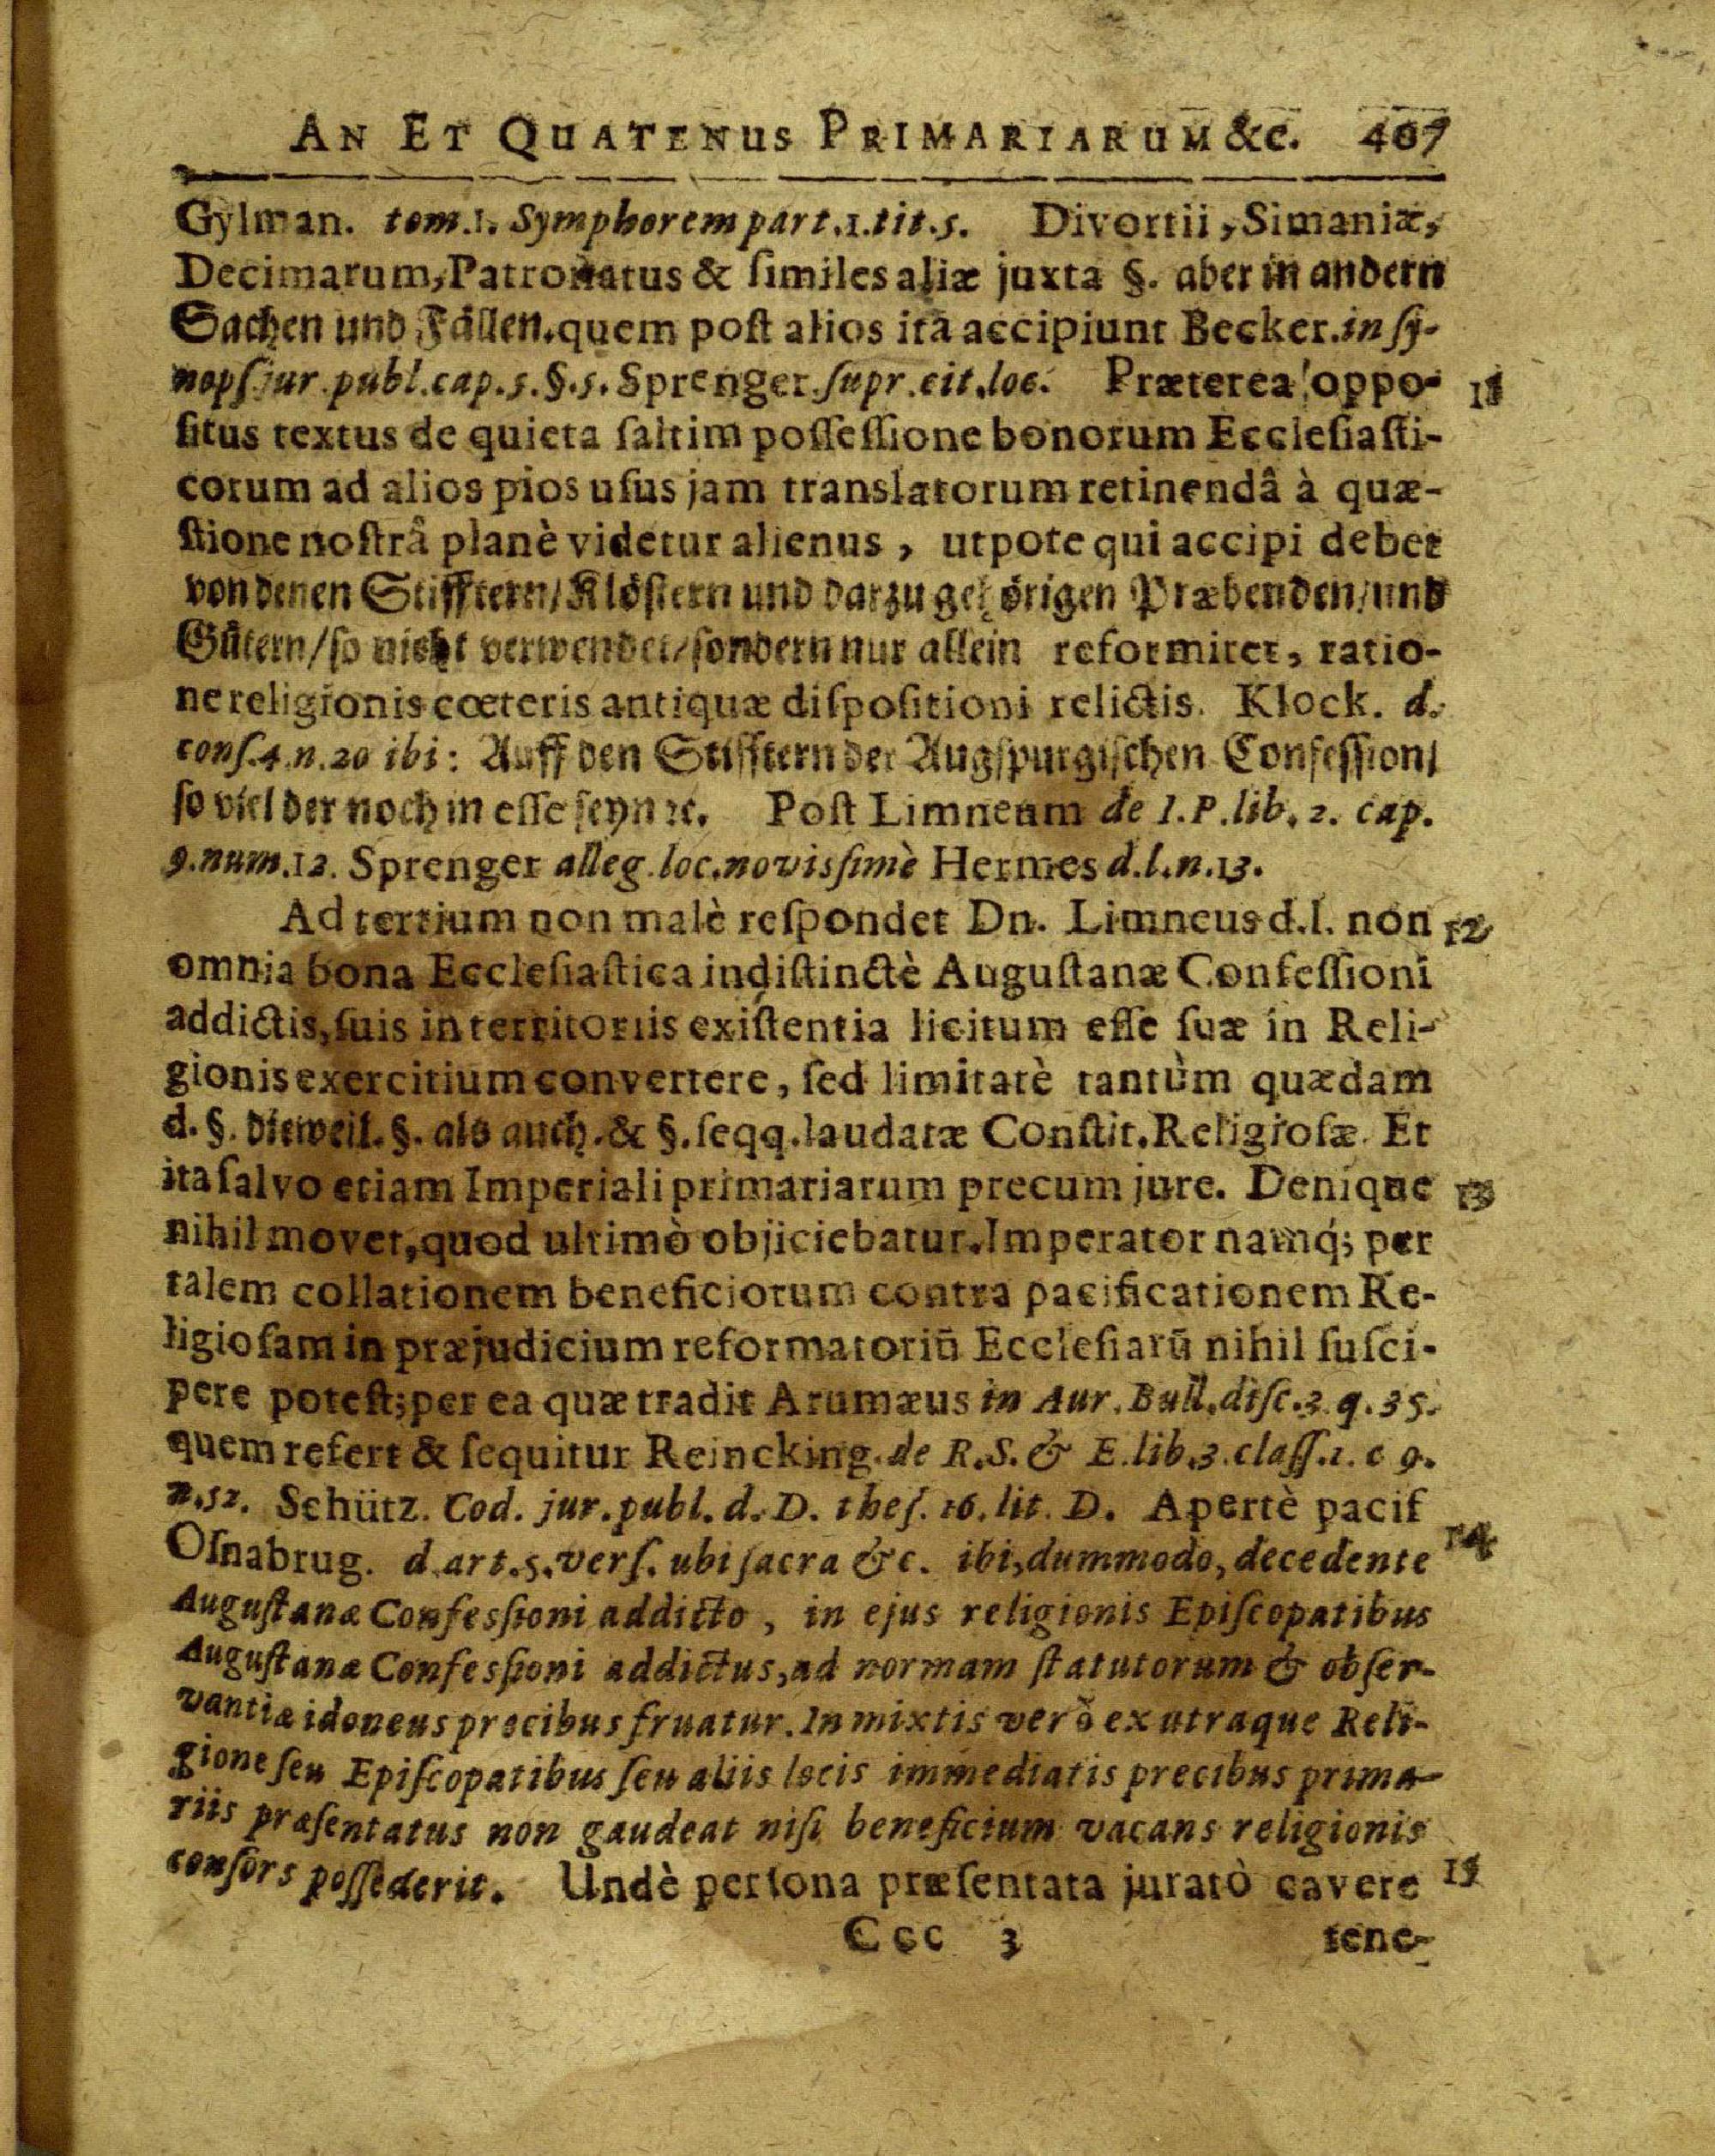 AN ET QUATENUS PRIMARIARUM &c. 407
Gylman. tom.1. Symphorem part.1.tit.5. Divortii, Simaniæ,
Decimarum, Patronatus & ſimiles aliæ juxta §. aber in andern
Sachen und Fällen. quem poſt alios ita accipiunt Becker. in ſy-
nopſ jur. publ. cap. 5. §. 5. Sprenger. ſupr. cit. loc. Præterea oppo- 11
ſitus textus de quieta ſaltim poſſeſſione bonorum Eccleſiaſti-
corum ad alios pios uſus jam translatorum retinendâ à quæ-
ſtione noſtrâ planè videtur alienus, utpote qui accipi debet
von denen Stifftern/ Klöſtern und darzu gehörigen Præbenden/ und
Gütern/ ſo nicht verwendet/ ſondern nur allein reformiret, ratio-
ne religionis cœteris antiquæ diſpoſitioni relictis. Klock. d.
conſ. 4. n. 20 ibi: Auff den Stifftern der Augſpurgiſchen Confeſſion/
ſo viel der noch in eſſe ſeyn ꝛc. Poſt Limneum de I. P. lib. 2. cap.
9. num. 12. Sprenger alleg. loc. novisſimè Hermes d. l. n. 13.
Ad tertium non malè reſpondet Dn. Limneus d. l. non 12
omnia bona Eccleſiaſtica indiſtinctè Auguſtanæ Confeſſioni
addictis, ſuis in territoriis exiſtentia licitum eſſe ſuæ in Reli-
gionis exercitium convertere, ſed limitatè tantùm quædam
d. §. dieweil. §. als auch. & §. ſeqq. laudatæ Conſtit. Religioſæ. Et
ita ſalvo etiam Imperiali primariarum precum jure. Denique 13
nihil movet, quod ultimò objiciebatur. Imperator namq́; per
talem collationem beneficiorum contra pacificationem Re-
ligioſam in præjudicium reformatoriũ Eccleſiarũ nihil ſuſci-
pere poteſt; per ea quæ tradit Arumæus in Aur. Bull. diſc. 3. q. 35.
quem refert & ſequitur Reincking. de R. S. & E. lib. 3. claſſ. 1. c 9.
n. 52. Schütz. Cod. jur. publ. d. D. theſ. 16. lit. D. Apertè pacif
Oſnabrug. d. art. 5. verſ. ubi ſacra &c. ibi, dummodo, decedente 14
Auguſtanæ Confesſioni addicto, in ejus religionis Epiſcopatibus
Auguſtanæ Confesſioni addictus, ad normam ſtatutorum & obſer-
vantiæ idoneus precibus fruatur. In mixtis verò ex utraque Reli-
gione ſeu Epiſcopatibus ſeu aliis locis immediatis precibus prima-
riis præſentatus non gaudeat niſi beneficium vacans religionis
conſors poſſederit. Undè perſona præſentata juratò cavere 15
Ccc 3 tene-